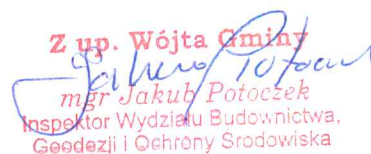 Z up. Wójta Gminy
mgr Jakub Potoczek
Inspektor Wydziału Budownictwa,
Geodezji i Ochrony Środowiska